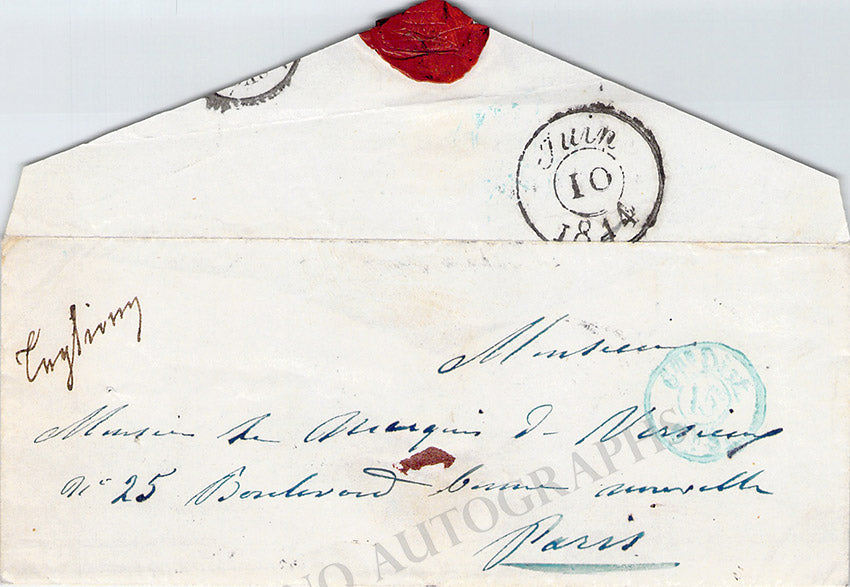 Juin
10
1844
Monsieur
Monsieur Le Marquis de
N° 25 Boulevard bonne nouvelle
Paris
NO AUTOGRAPHS